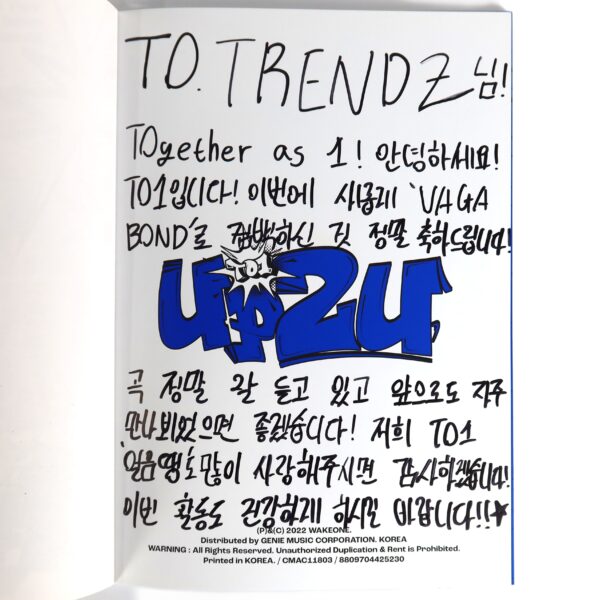 TO. TRENDZ님!
TOgether as 1! 안녕하세요!
TO1입니다! 이번에 새롭게 'VAGA
BOND'로 컴백하신 것 정말 축하드립니다!
TO1
up2u
곡 정말 잘 듣고 있고 앞으로도 자주
만나뵈었으면 좋겠습니다! 저희 TO1
얼음땡도 많이 사랑해주시면 감사하겠습니다!
이번 활동도 건강하게 하시길 바랍니다!!★
(P)&(C) 2022 WAKEONE.
Distributed by GENIE MUSIC CORPORATION. KOREA
WARNING : All Rights Reserved. Unauthorized Duplication & Rent is Prohibited.
Printed in KOREA. / CMAC11803 / 8809704425230